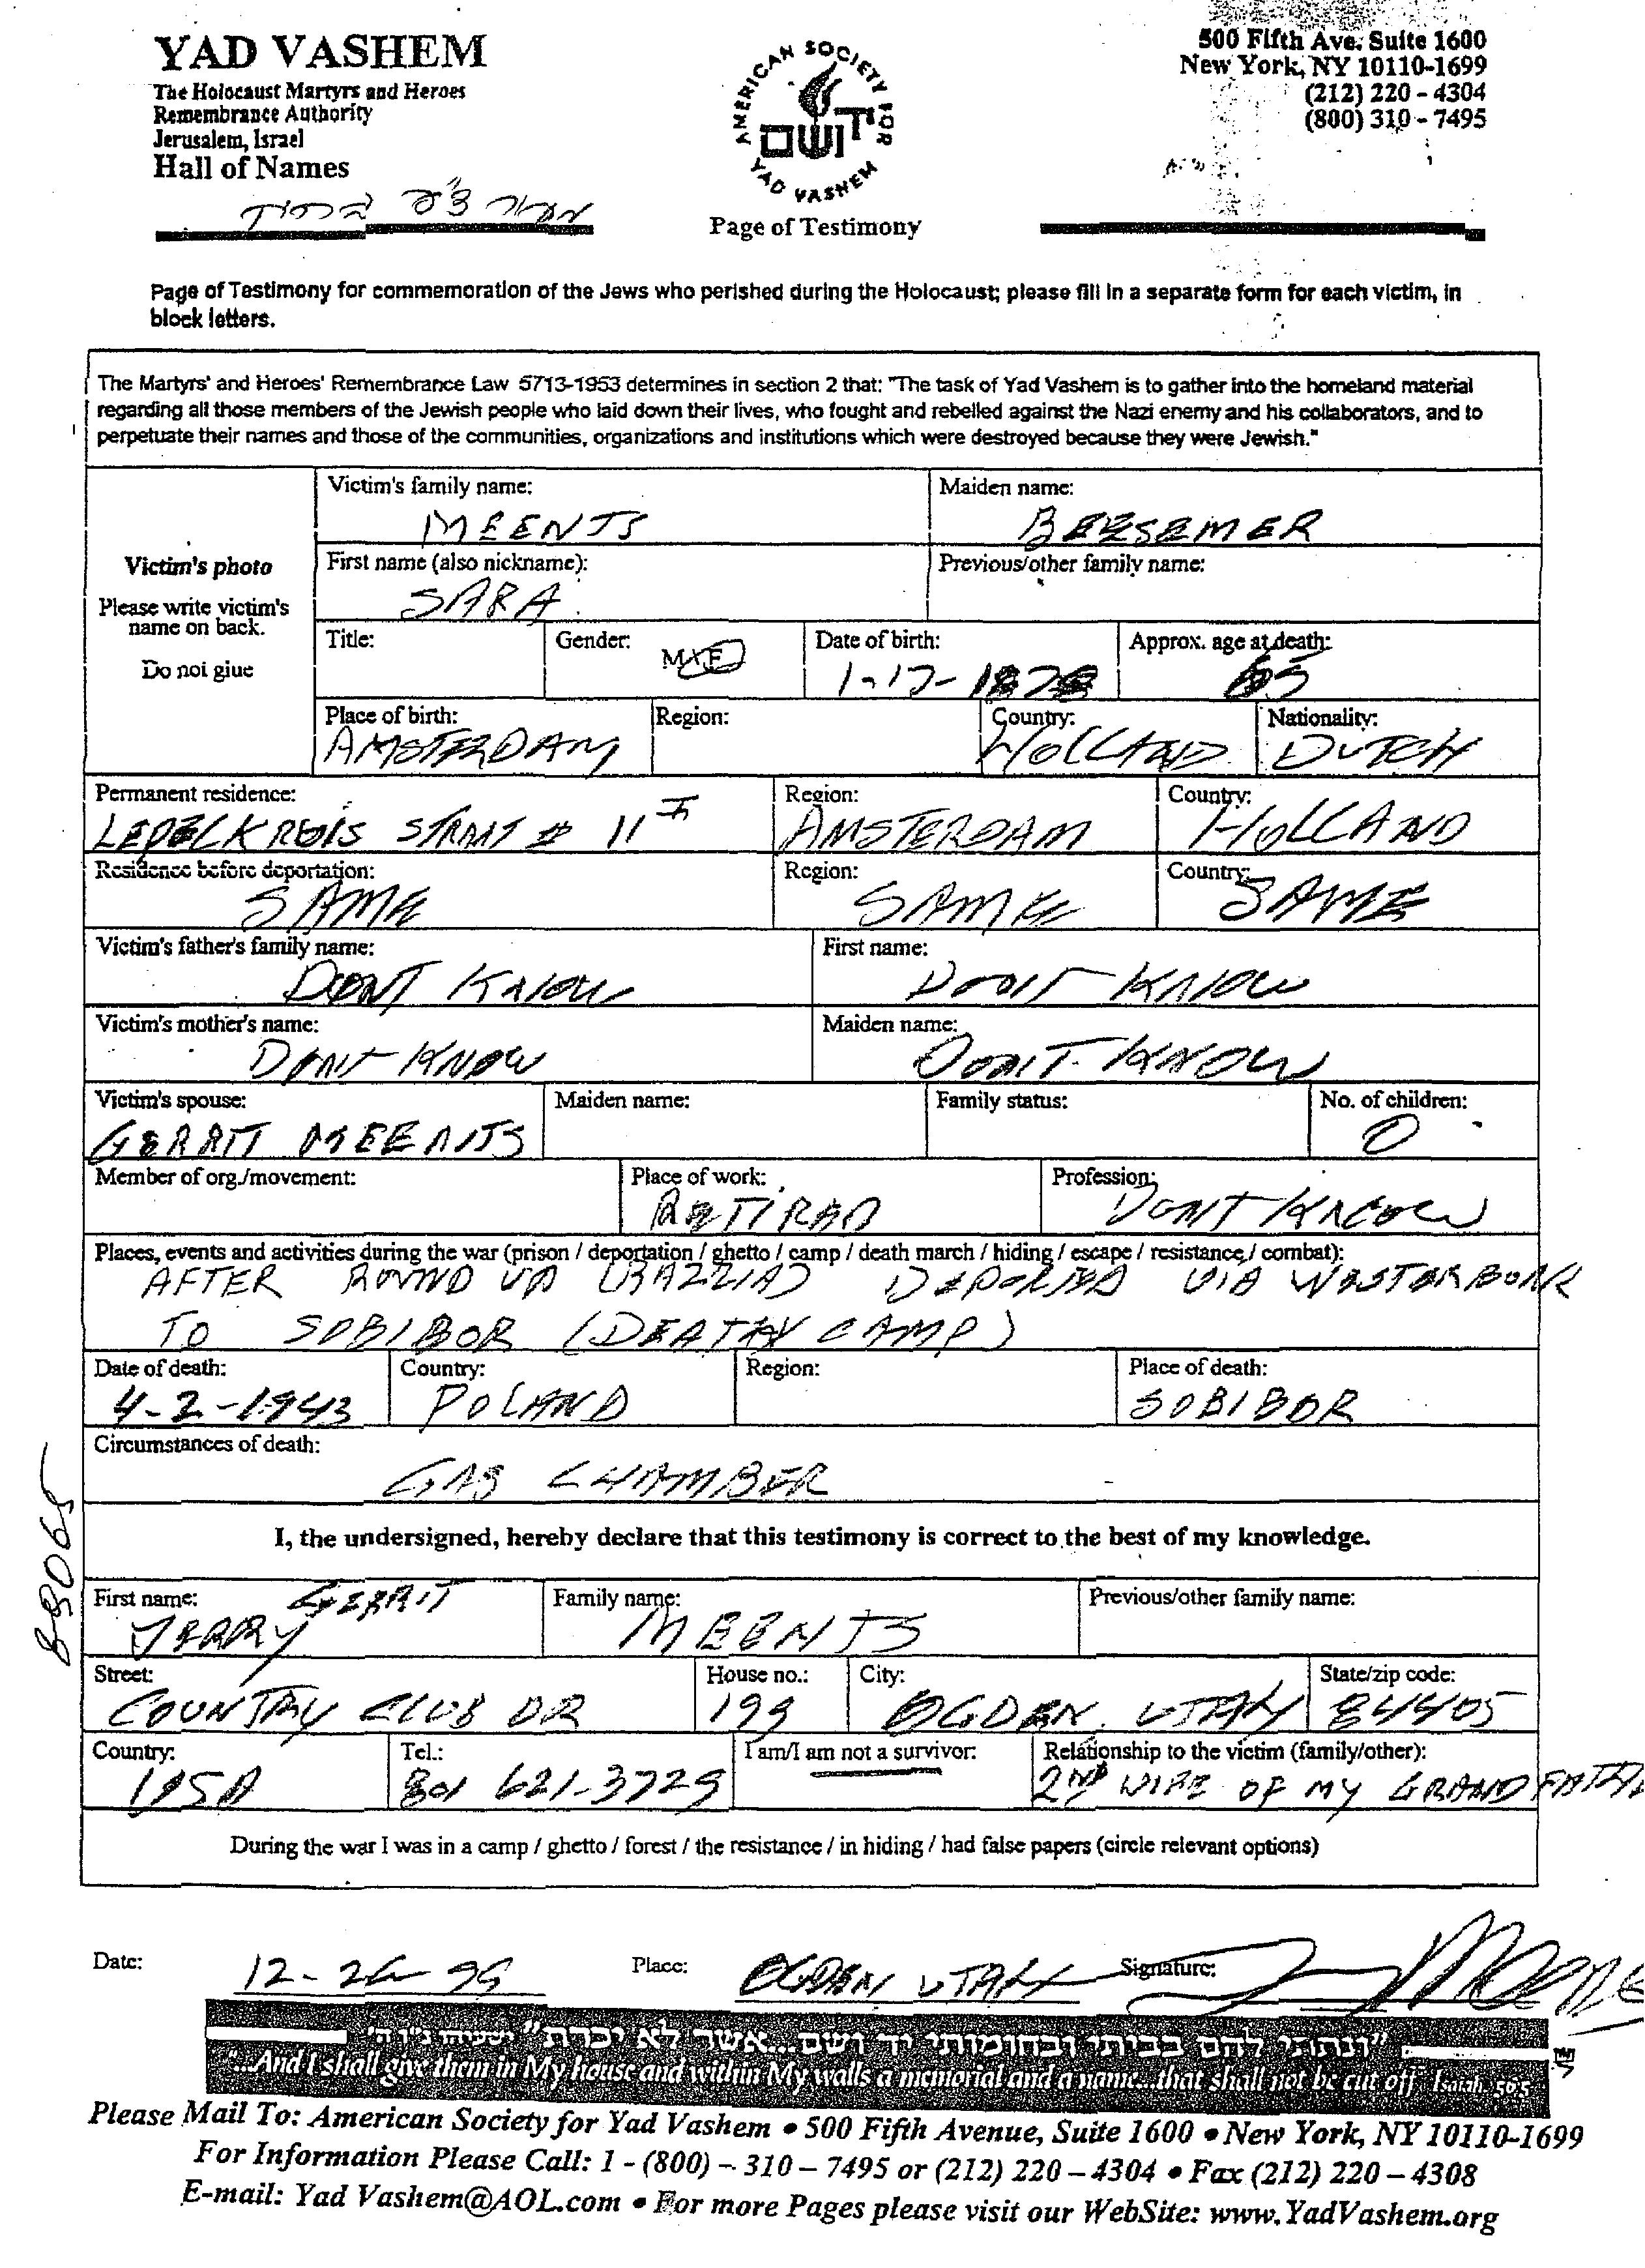 YAD VASHEM
The Holocaust Martyrs and Heroes
Remembrance Authority
Jerusalem, Israel
Hall of Names
AMERICAN SOCIETY FOR YAD VASHEM
יד ושם
Page of Testimony
500 Fifth Ave. Suite 1600
New York, NY 10110-1699
(212) 220 - 4304
(800) 310 - 7495
Page of Testimony for commemoration of the Jews who perished during the Holocaust; please fill in a separate form for each victim, in
block letters.
The Martyrs' and Heroes' Remembrance Law 5713-1953 determines in section 2 that: "The task of Yad Vashem is to gather into the homeland material
regarding all those members of the Jewish people who laid down their lives, who fought and rebelled against the Nazi enemy and his collaborators, and to
perpetuate their names and those of the communities, organizations and institutions which were destroyed because they were Jewish."
Victim's photo
Please write victim's
name on back.
Do not glue
Victim's family name: MEENTS
Maiden name: BEESEMER
First name (also nickname): SARA
Previous/other family name:
Title:
Gender: M/F
Date of birth: 1-17-1878
Approx. age at death: 65
Place of birth: AMSTERDAM
Region:
Country: HOLLAND
Nationality: DUTCH
Permanent residence: STRAAT # 11
Region: AMSTERDAM
Country: HOLLAND
Residence before deportation: SAME
Region: SAME
Country: SAME
Victim's father's family name: DONT KNOW
First name: DONT KNOW
Victim's mother's name: DONT KNOW
Maiden name: DONT KNOW
Victim's spouse: GERRIT MEENTS
Maiden name:
Family status:
No. of children: 0
Member of org./movement:
Place of work: RETIRED
Profession: DONT KNOW
Places, events and activities during the war (prison / deportation / ghetto / camp / death march / hiding / escape / resistance / combat):
AFTER ROUND UP (RAZZIA) DEPORTED VIA WESTERBORK
TO SOBIBOR (DEATH CAMP)
Date of death: 4-2-1943
Country: POLAND
Region:
Place of death: SOBIBOR
Circumstances of death:
GAS CHAMBER
88065
I, the undersigned, hereby declare that this testimony is correct to the best of my knowledge.
First name: JERRY GERRIT
Family name: MEENTS
Previous/other family name:
Street: COUNTRY CLUB DR
House no.: 199
City: OGDEN, UTAH
State/zip code: 84405
Country: USA
Tel.: 801 621-3729
I am/I am not a survivor:
Relationship to the victim (family/other): 2ND WIFE OF MY GRANDFATHE
During the war I was in a camp / ghetto / forest / the resistance / in hiding / had false papers (circle relevant options)
Date: 12-26-99
Place: OGDEN UTAH
Signature:
"ונתתי להם בביתי ובחומותי יד ושם...אשר לא יכרת" ישעיהו נ"ו ה'
"...And I shall give them in My house and within My walls a memorial and a name...that shall not be cut off" Isaiah 56:5
Please Mail To: American Society for Yad Vashem • 500 Fifth Avenue, Suite 1600 • New York, NY 10110-1699
For Information Please Call: 1 - (800) - 310 - 7495 or (212) 220 - 4304 • Fax (212) 220 - 4308
E-mail: Yad Vashem@AOL.com • For more Pages please visit our WebSite: www.YadVashem.org